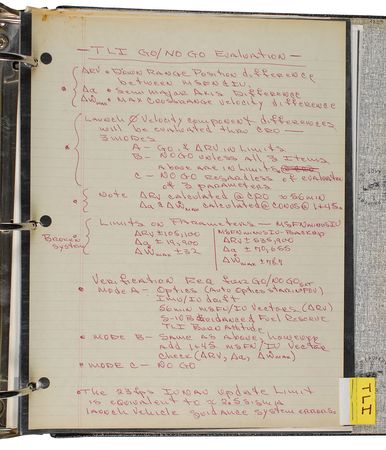 — TLI GO/NO GO Evaluation —
ΔRV • Down Range Position difference
between MSFN & IU.
Δa • Semi Major Axis Difference
ΔWmax • Max Crossrange Velocity difference
Launch Ø Velocity component differences
will be evaluated thru CRO —
3 modes
A – Go, & ΔRV in Limits
B – NO GO unless all 3 Items
above are in Limits
C – NO GO regardless of evaluation
of 3 parameters
Note ΔRV calculated @ CRO ≈ 56 min
Δa & ΔWmax calculated @
Limits on Parameters – MSFN minus IU
Broken System
ΔRV ± 105,100
Δa ± 19,900
ΔWmax ± 32
MSFN minus IU – Backup
ΔRV ± 535,900
Δa ± 70,655
ΔWmax ± 789
Verification Req for GO/NO GO
• Mode A – Optics (Auto Optics Star in FOV)
IMU/IU drift
56 min MSFN/IU Vectors (ΔRV)
S-IVB Guidance Fuel Reserve
TLI Burn Attitude
• Mode B – Same as above, however
add 1+45 MSFN/IU Vector
Check (ΔRV, Δa, ΔWmax)
• Mode C – NO GO
• The 23 fps IU nav update Limit
is equivalent to ≈ 2.55 sigma
launch vehicle guidance system errors.
TLI